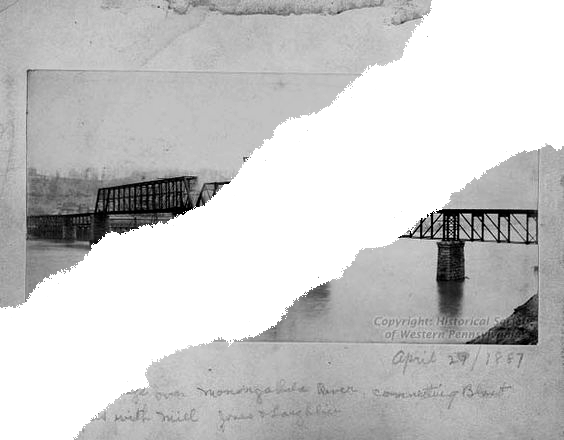 Copyright: Historical Society
of Western Pennsylvania
April 29/1887
over Monongahela River, connecting Blast
with Mill Jones & Laughlin